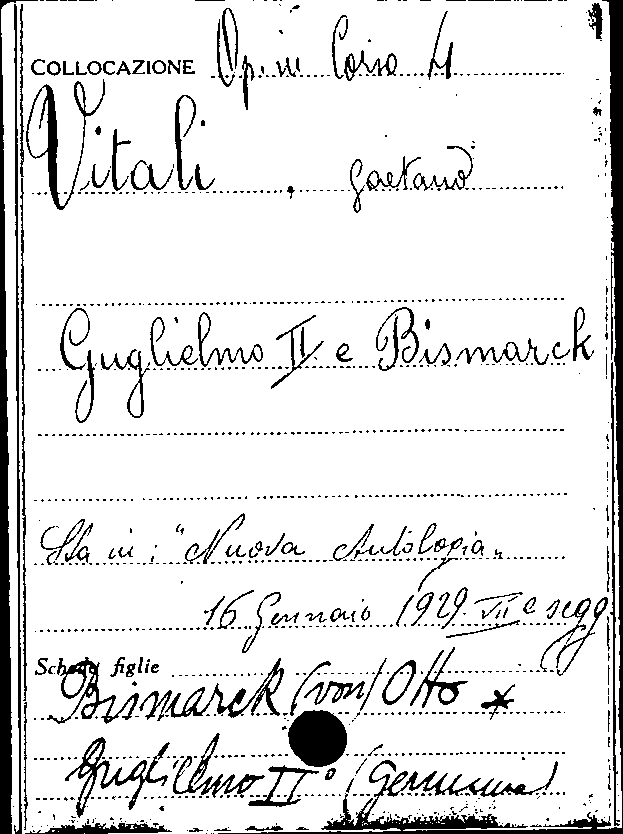 COLLOCAZIONE Op. in Corso 4
Vitali, Gaetano
Guglielmo II e Bismarck
Sta in: "Nuova Antologia„
16 Gennaio 1929. VII e segg.
Schede figlie
Bismarck (von) Otto *
Guglielmo II° (Germania)